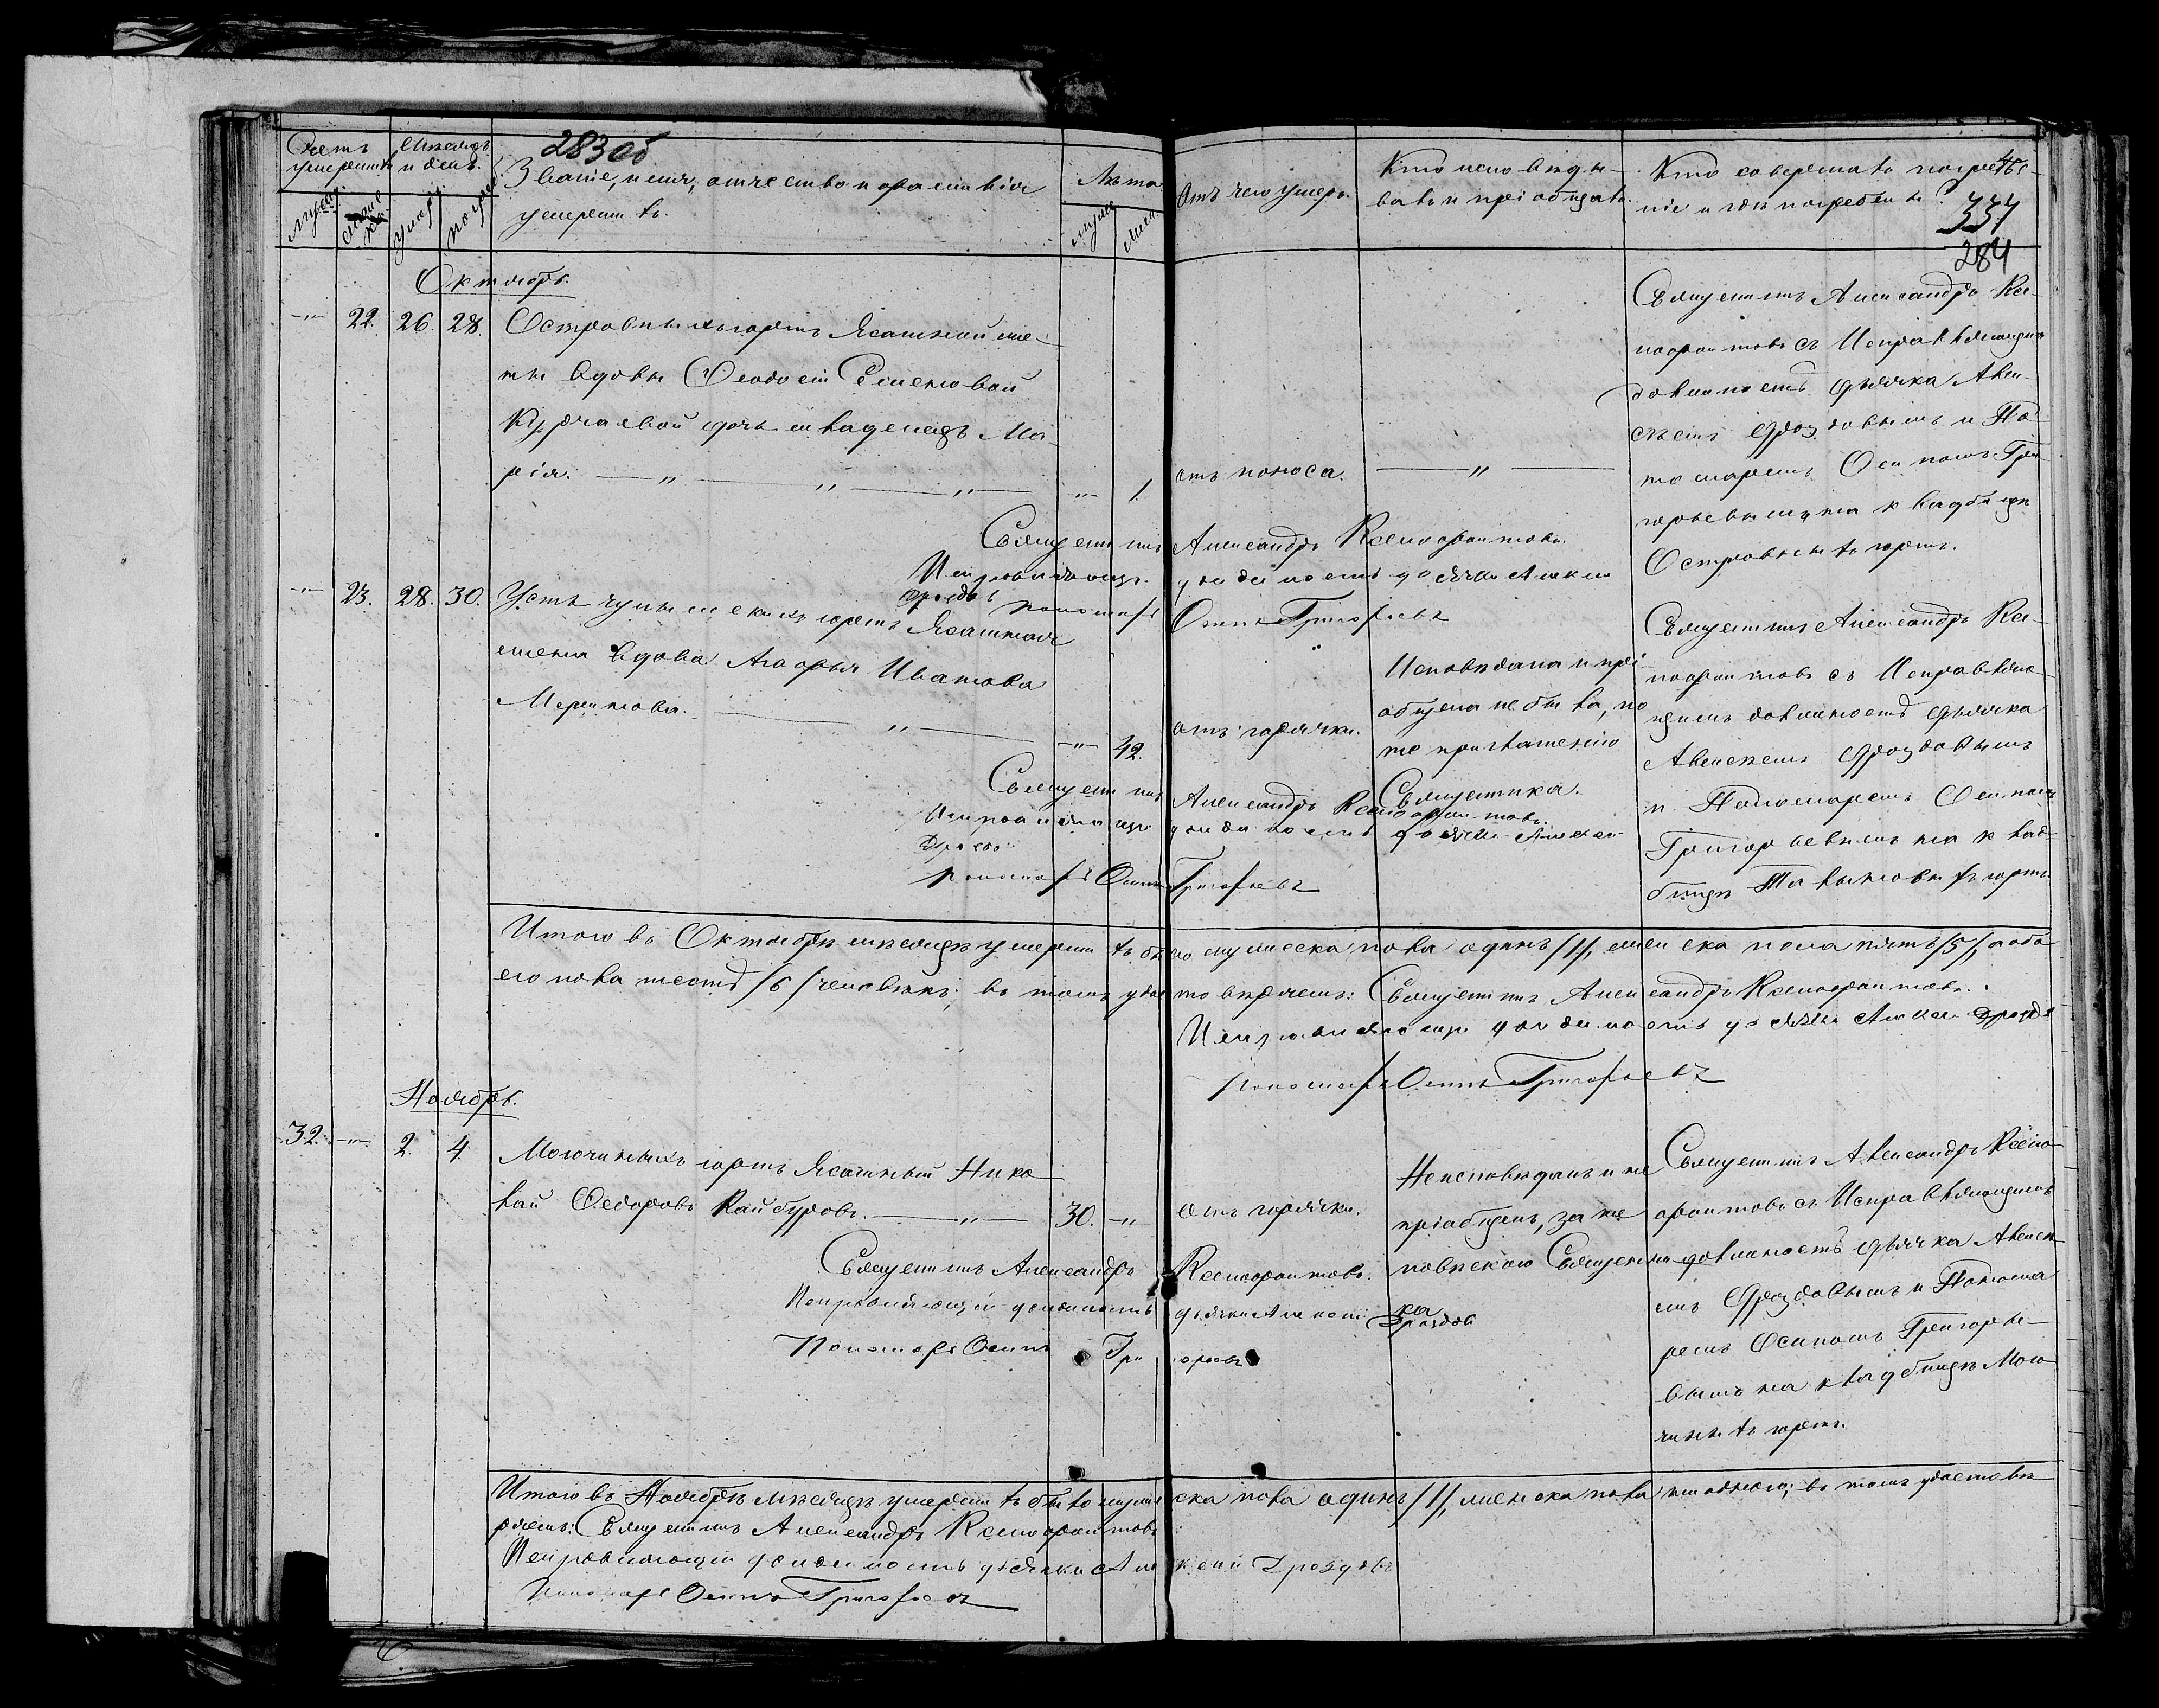 283 об
Счетъ умершихъ
Мѣсяцъ и день.
Званіе, имя, отчество и фамилія
умершихъ.
Лѣта.
Отъ чего умеръ.
Кто исповѣды-
валъ и пріобщалъ.
Кто совершалъ погребе-
ніе и гдѣ погребены?
337
284
муж.
женс
умер.
погреб.
муж
жен
Октябрь.
22. 26. 28. Островныхъ юртъ Ясашной же-
ны вдовы Феодосіи Семеновой
Курдчаевой дочь младенецъ Ма-
рія. 1. отъ поноса.
Священникъ Александръ Ксе-
нофонтовъ съ Исправляющимъ
должность дьячка Алек-
сѣемъ Дроздовымъ и По-
номаремъ Осипомъ Гри-
горьевымъ на кладбищѣ
Островныхъ юртъ.
Священникъ Александръ Ксенофонтовъ.
Исправляющій должность дьячка Алексѣй
Дроздовъ Пономарь Осипъ Григорьевъ
23. 28. 30. Усть чулымскихъ юртъ Ясашная
жена вдова Агафья Иванова
Мериннова. 42. отъ горячки.
Исповѣдана и прі-
общена не была, по
не приглашенію
Священника.
Священникъ Александръ Ксе-
нофонтовъ съ Исправляю-
щимъ должность дьячка
Алексѣемъ Дроздовымъ
и Пономаремъ Осипомъ
Григорьевымъ на клад-
бищѣ юртъ
Священникъ Александръ Ксенофонтовъ.
Исправляющій должность дьячка Алексѣй
Дроздовъ
Пономарь Осипъ Григорьевъ
Итого въ Октябрѣ мѣсяцѣ умершихъ было мужеска пола одинъ /1/, женска пола пять /5/, а обо-
его пола шесть /6/ человѣкъ; въ томъ удостовѣряемъ: Священникъ Александръ Ксенофонтовъ.
Исправляющій должность дьячка Алексѣй Дроздовъ
Пономарь Осипъ Григорьевъ
Ноябрь.
32. 2. 4. Могочиныхъ юртъ Ясашный Нико-
лай Федоровъ Кайбуровъ. 30. отъ горячки.
Неисповѣданъ и не
пріобщенъ, за не
повѣскою Священни-
ка
Священникъ Александръ Ксено-
фонтовъ съ Исправляющимъ
должность дьячка Алексѣ-
емъ Дроздовымъ и Понома-
ремъ Осипомъ Григорье-
вымъ на кладбищѣ Мого-
чиныхъ юртъ.
Священникъ Александръ Ксенофонтовъ.
Исправляющій должность дьячка Алексѣй Дроздовъ
Пономарь Осипъ Григорьевъ
Итого въ Ноябрѣ мѣсяцѣ умершихъ было мужеска пола одинъ /1/, женска пола ни одного; въ томъ удостовѣ-
ряемъ: Священникъ Александръ Ксенофонтовъ
Исправляющій должность дьячка Алексѣй Дроздовъ
Пономарь Осипъ Григорьевъ